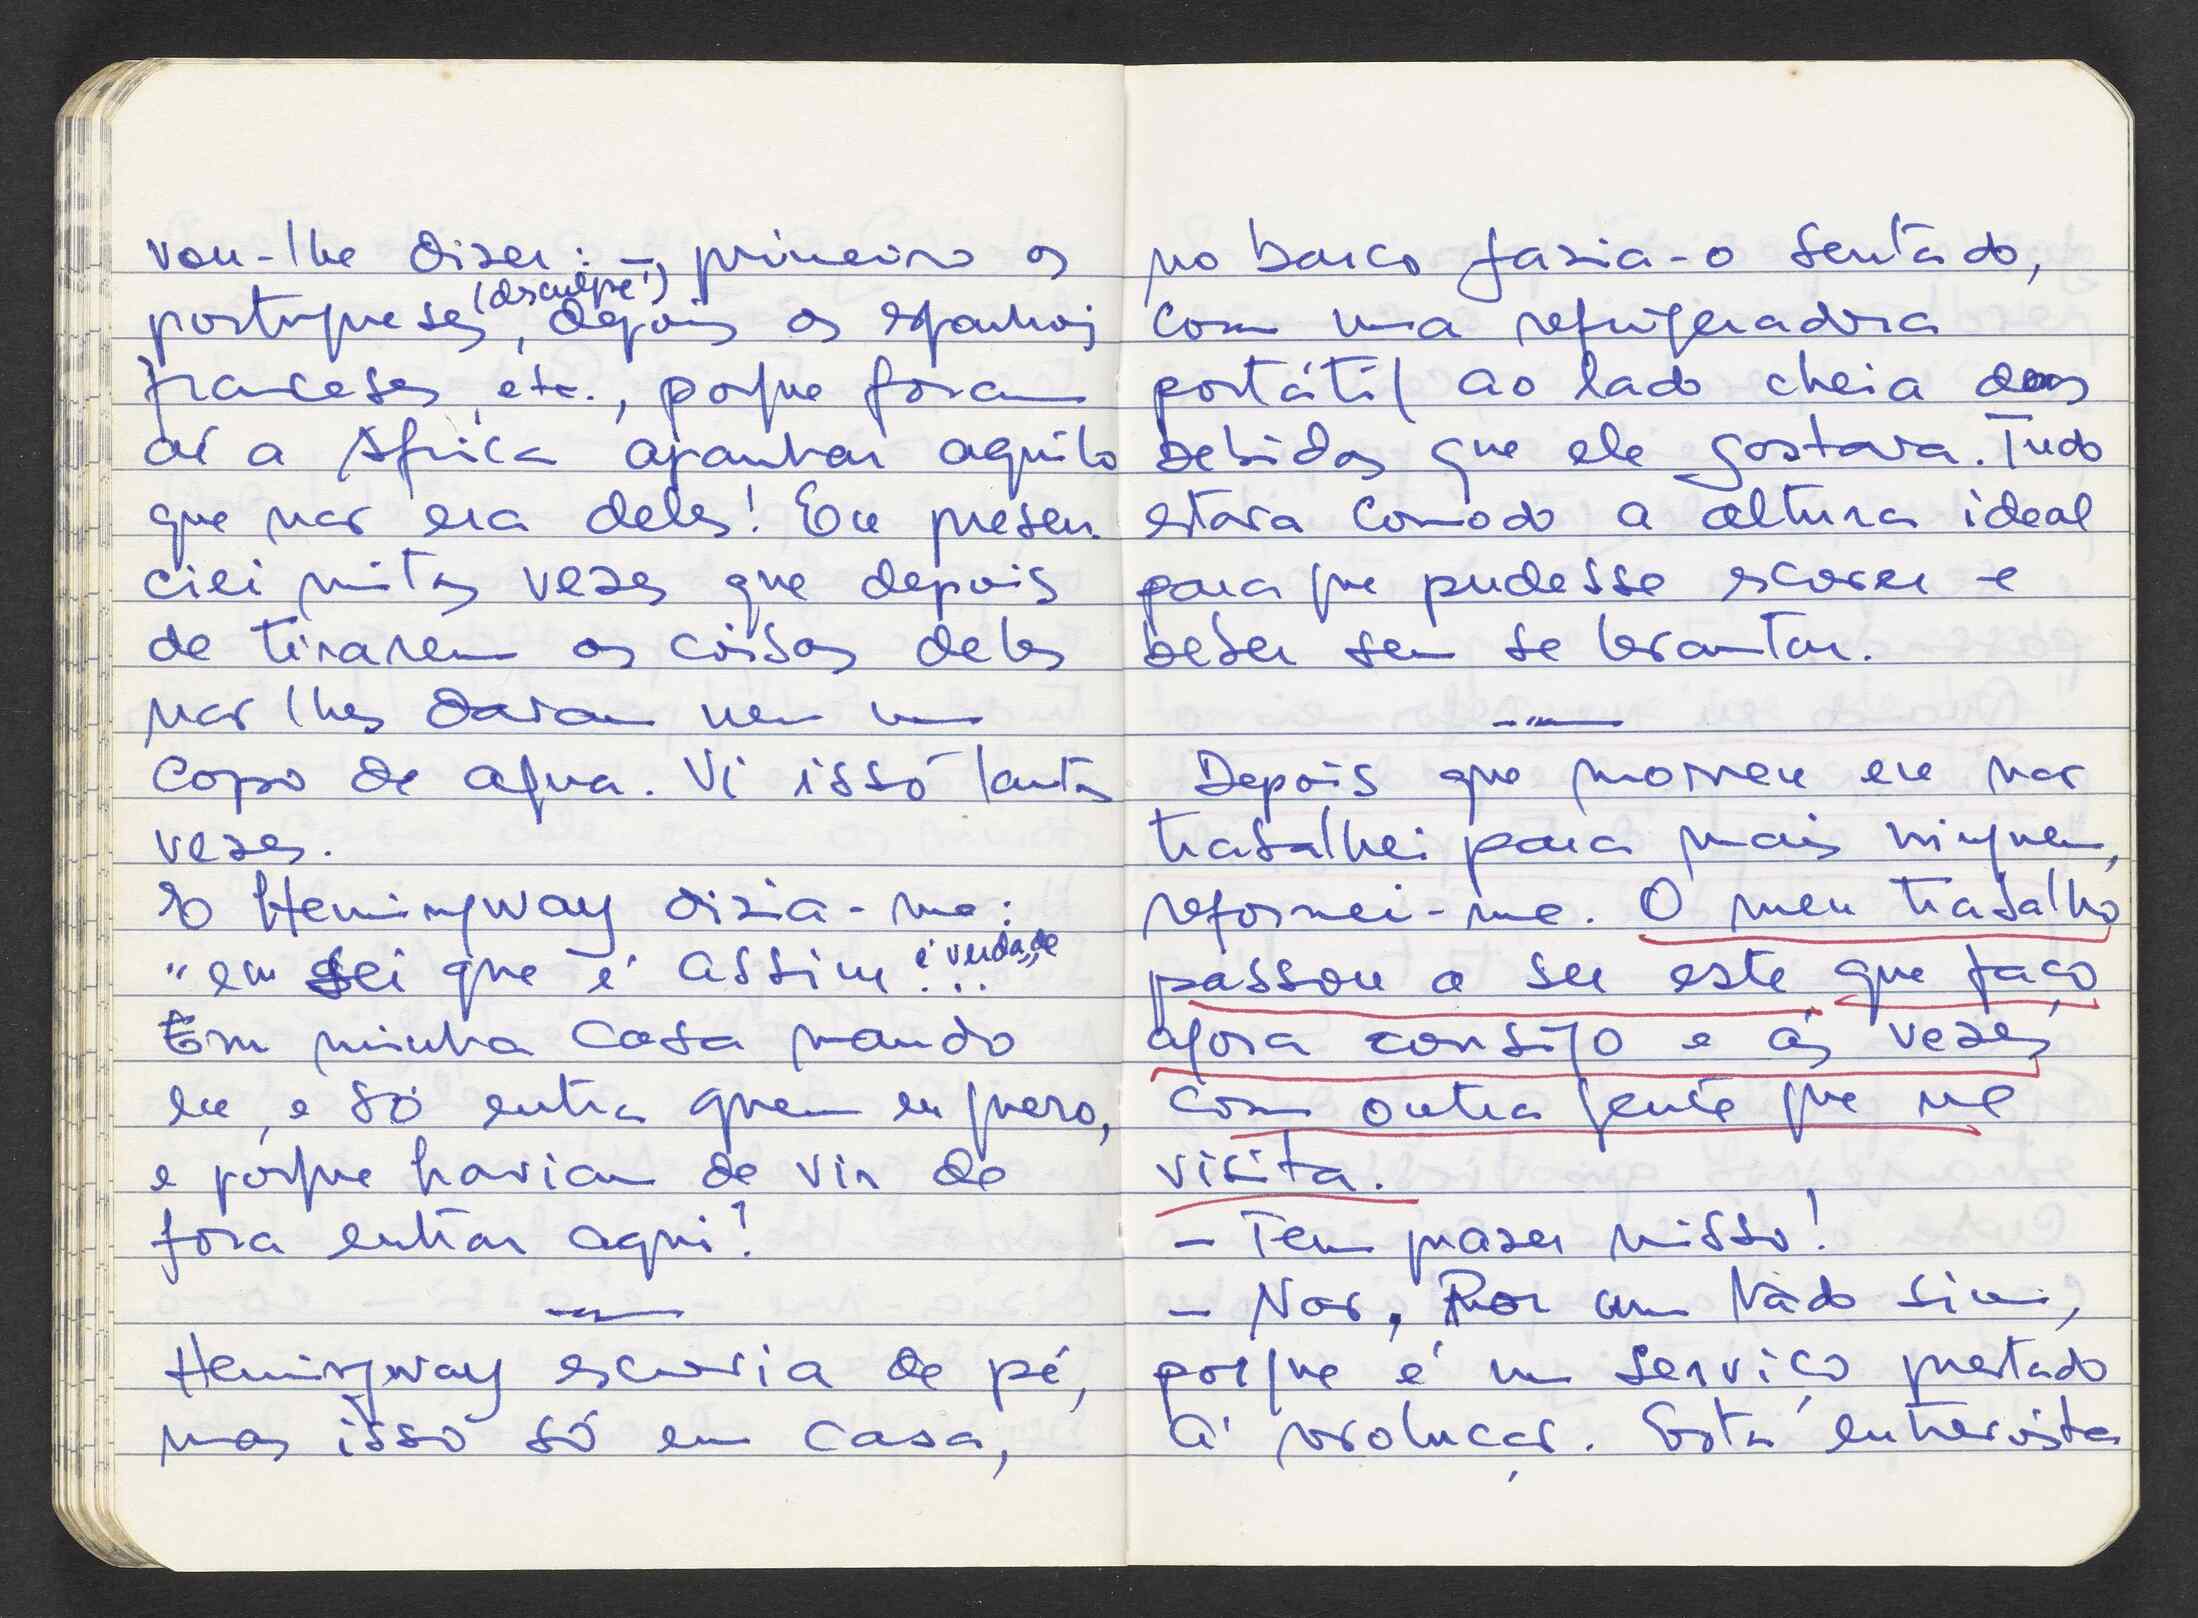 vou-lhe dizer: – primeiro os
portugueses (desculpe!), depois os espanhois
franceses, etc., porque foram
aí a Africa apanhar aquilo
que não era deles! Eu presen-
ciei muitas vezes que depois
de tirarem as coisas deles
não lhes davam nem um
copo de agua. Vi isso tantas
vezes.
E o Hemingway dizia-me:
"eu sei que é assim... é verdade"
Em minha casa mando
eu, e só entra quem eu quero,
e porque haviam de vir de
fora entrar aqui?
Hemingway escrevia de pé,
mas isso só em casa,
no barco fazia-o sentado,
com uma refrigeradora
portátil ao lado cheia das
bebidas que ele gostava. Tudo
estava comodo a altura ideal
para que pudesse escrever e
beber sem se levantar.
Depois que morreu eu não
trabalhei para mais ninguem,
reformei-me. O meu trabalho
passou a ser este que faço
agora consigo e ás vezes
com outra gente que me
visita.
– Tem prazer nisso!
– Não, Por um lado sim,
porque é um serviço prestado
á revolução. Esta entrevista